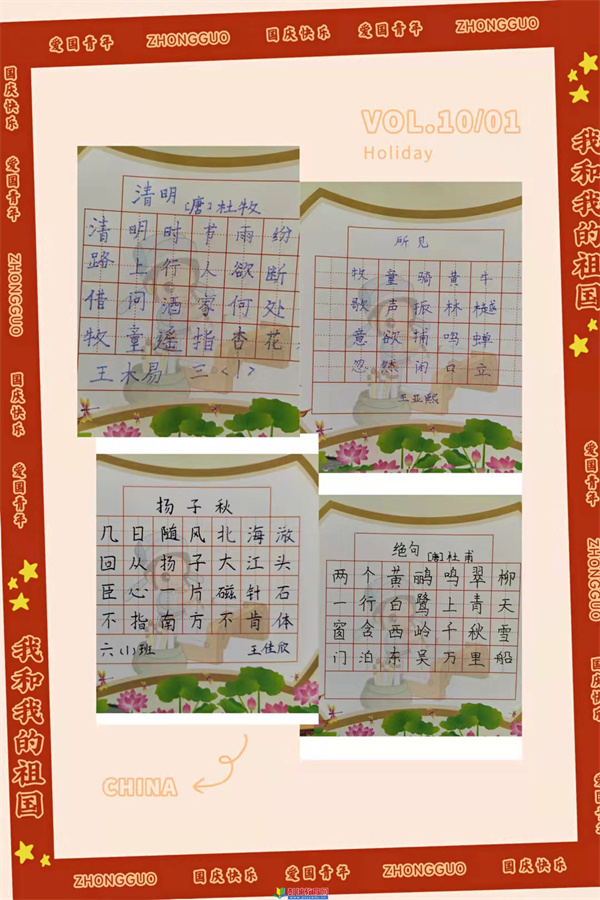 爱国青年 ZHONGGUO 国庆快乐 爱国青年 ZHONGGUO
国庆快乐
爱国青年
ZHONGGUO
国庆快乐
爱国青年
我和我的祖国
VOL.10/01
Holiday
清明
[唐]杜牧
清明时节雨纷
路上行人欲断
借问酒家何处
牧童遥指杏花
王木易 三<1>
所见
牧童骑黄牛
歌声振林樾
意欲捕鸣蝉
忽然闭口立
王亚熙
扬子秋
几日随风北海
回从扬子大江头
臣心一片磁针石
不指南方不肯体
六(1)班 王佳欣
绝句
[唐]杜甫
两个黄鹂鸣翠柳
一行白鹭上青天
窗含西岭千秋雪
门泊东吴万里船
CHINA
我和我的祖国
爱国青年
ZHONGGUO
国庆快乐
爱国青年
ZHONGGUO
ZHONGGUO 国庆快乐 爱国青年 ZHONGGUO 国庆快乐